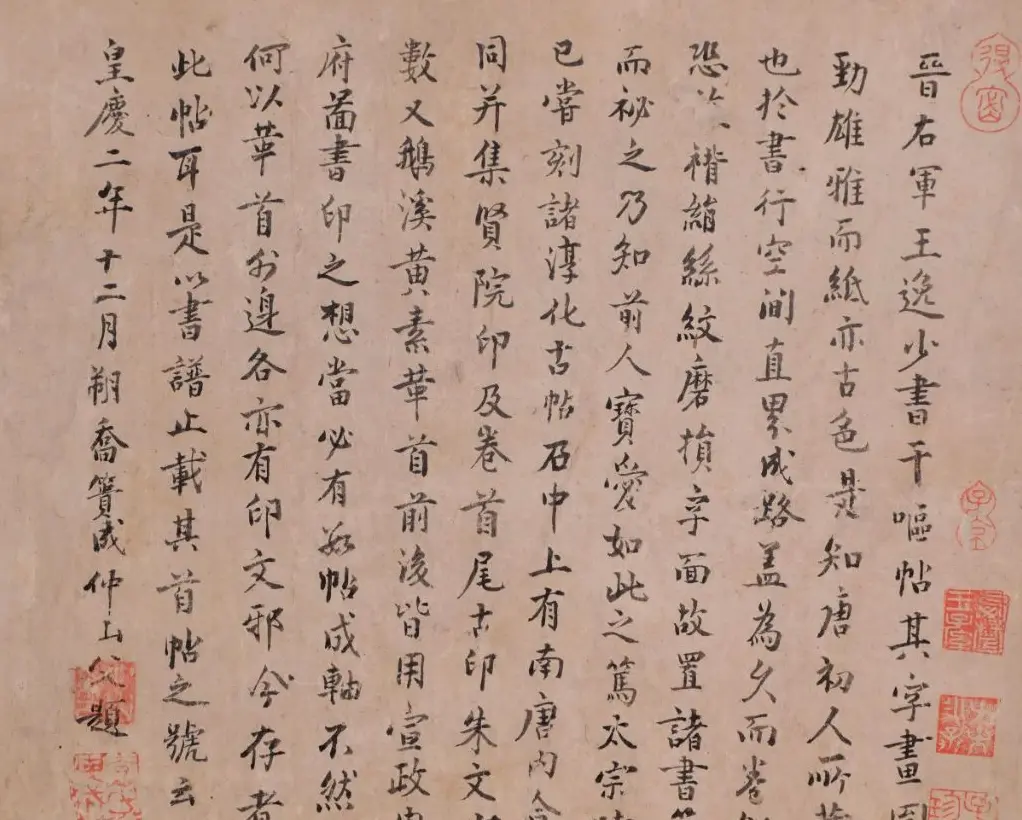 晉右軍王逸少書干嘔帖其字畫
勁雄雅而紙亦古色是知唐初人所
也於書行空間直界成路蓋為久而卷
恐 褙絹絲紋磨損字面故置諸書
而祕之乃知前人寶愛如此之篤太宗
已嘗刻諸淳化古帖石中上有南唐內合
同并集賢院印及卷首尾古印朱文
數又鵝溪黃素華首前後皆用宣政
府圖書印之想當必有數帖成軸不然
何以華首外邊各亦有印文邪今存者
此帖耳是以書譜止載其首帖之號云
皇慶二年十二月朔喬簣成仲山父題